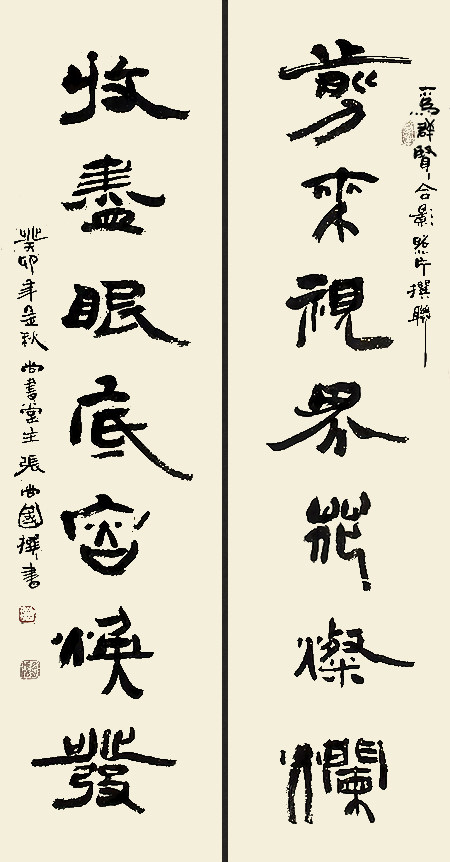 爲群賢合影照片撰聯
剪来視界花燦爛
收盡眼底容煥發
癸卯年秋尚書堂主張尚國撰書